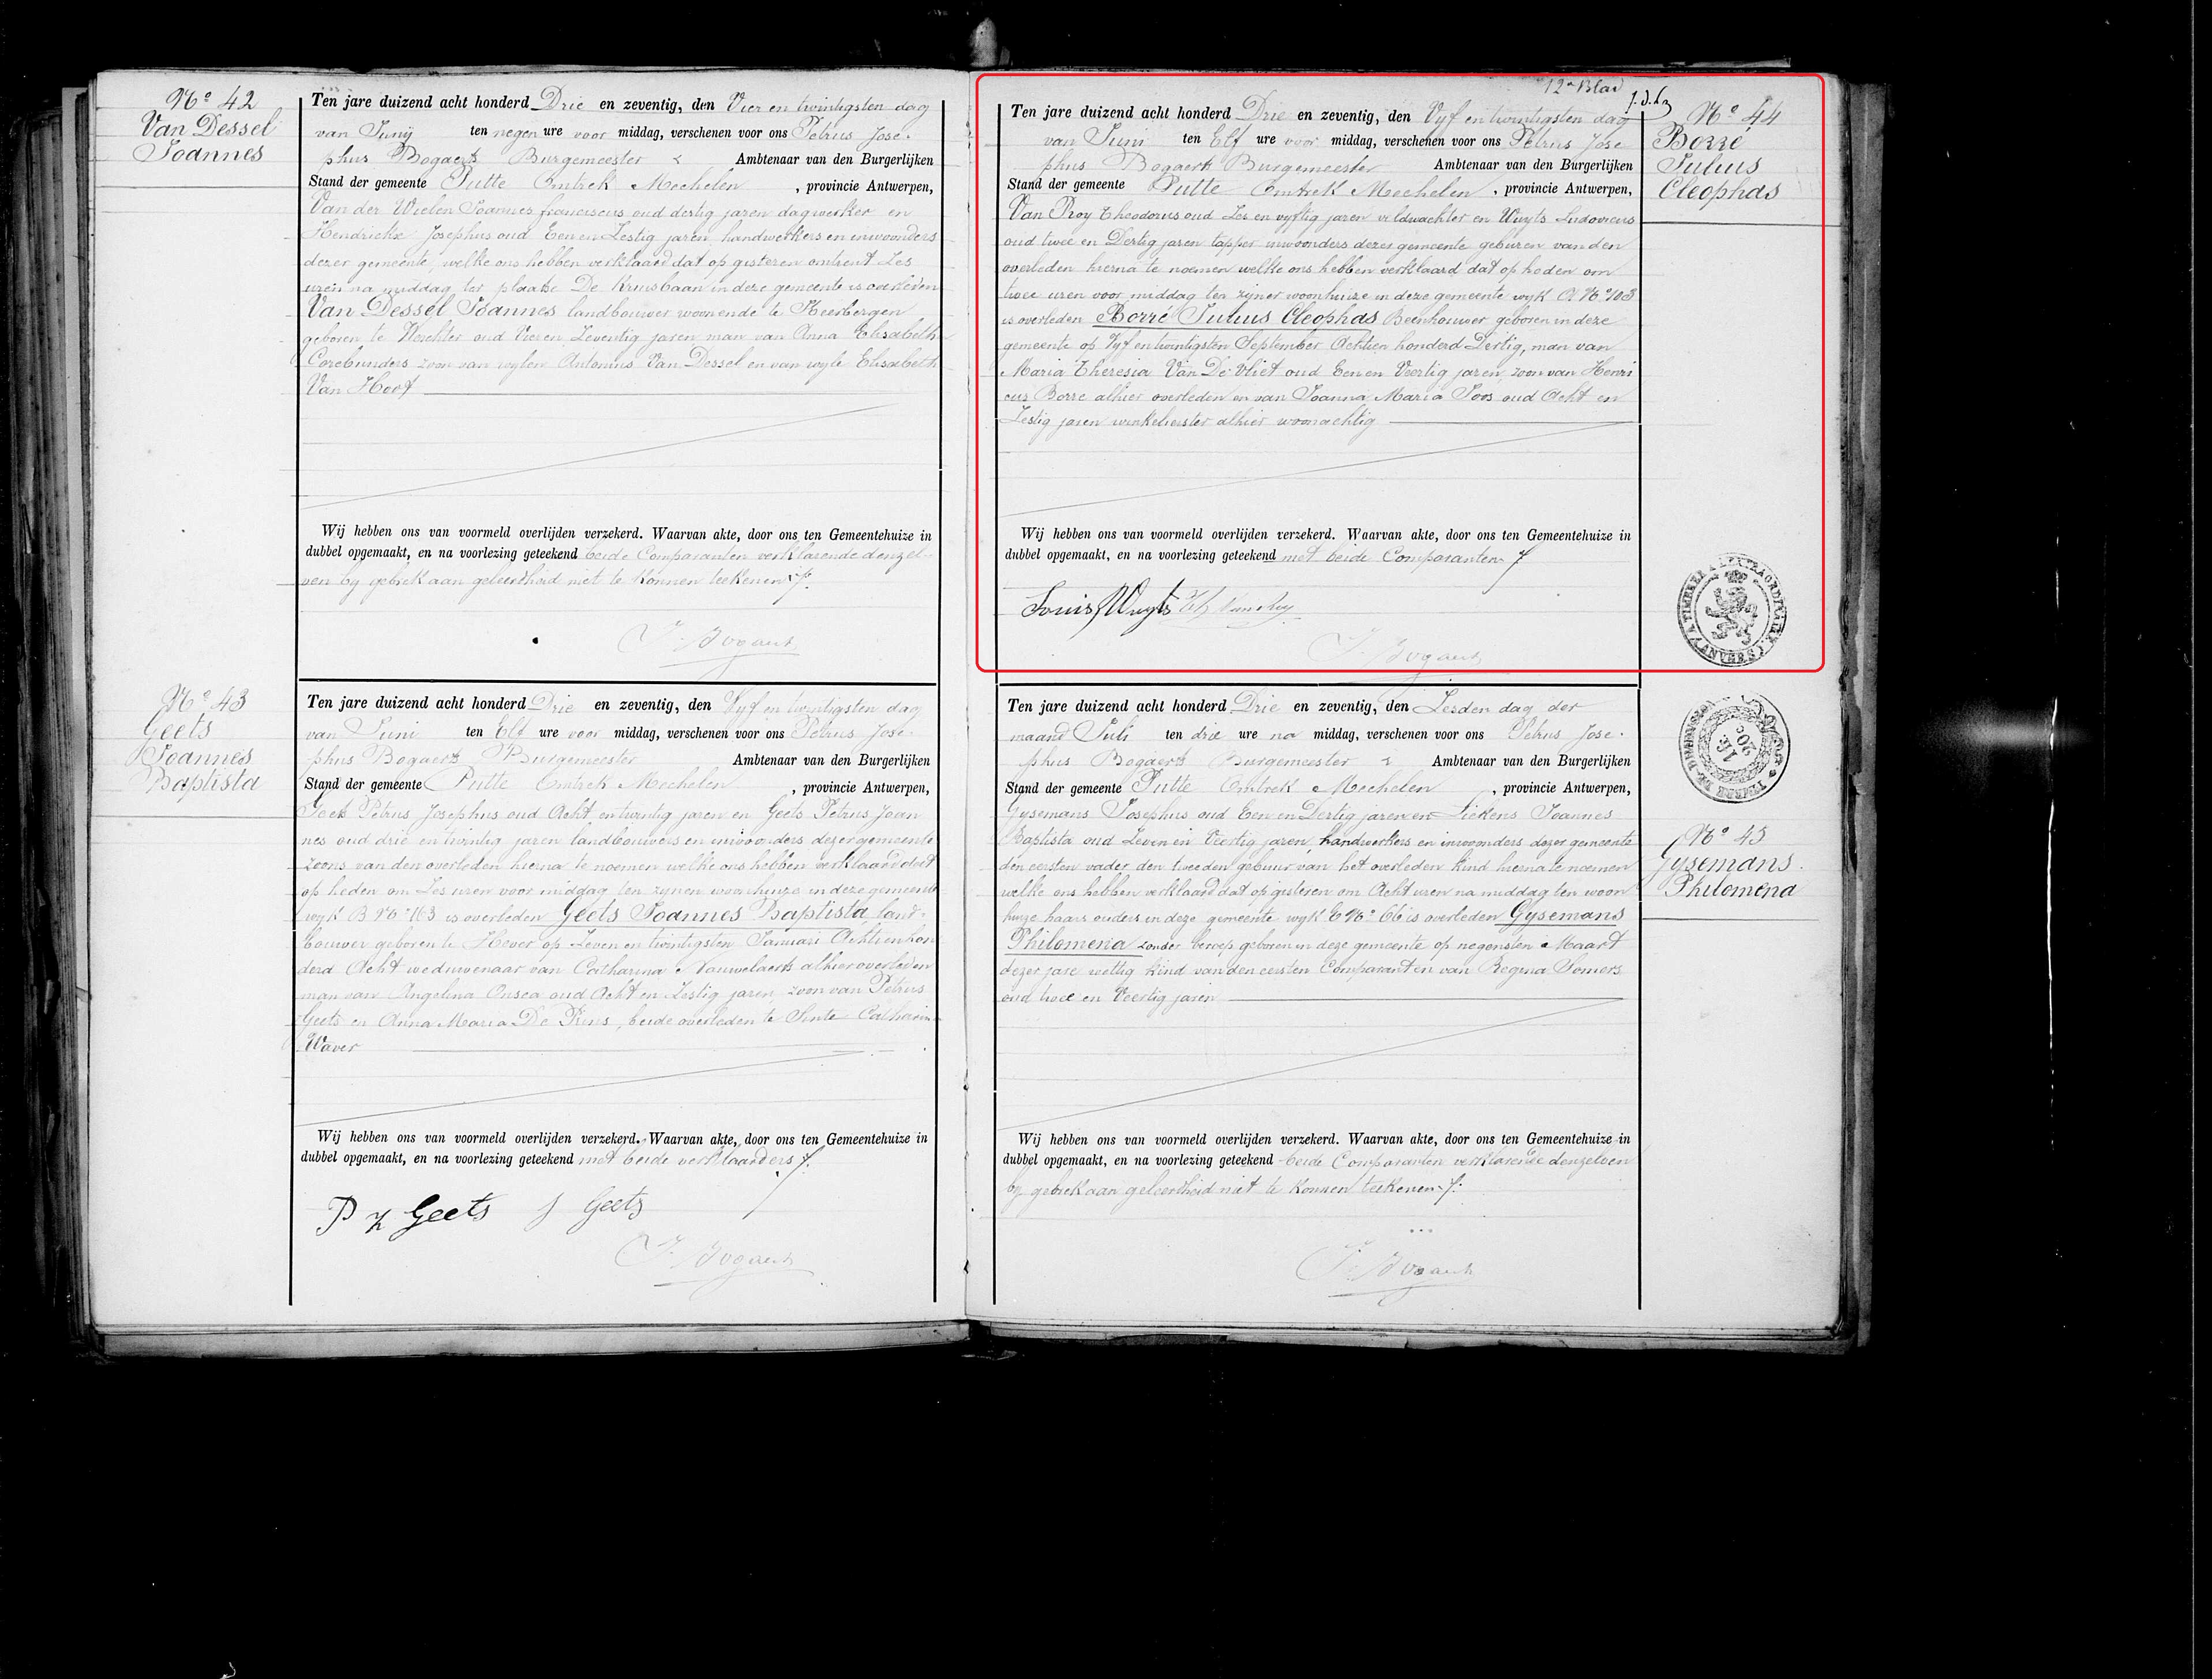 Nº 42
Van Dessel
Joannes
Ten jare duizend acht honderd Drie en zeventig, den Vier en twintigsten dag
van Junij ten negen ure voor middag, verschenen voor ons Petrus Jose-
phus Bogaerts Burgemeester Ambtenaar van den Burgerlijken
Stand der gemeente Putte Omtrek Mechelen, provincie Antwerpen,
Van der Wielen Joannes franciscus oud dertig jaren dagwerker en
Hendrickx Josephus oud Een en Zestig jaren handwerkers en inwoonders
dezer gemeente, welke ons hebben verklaard dat op gisteren omtrent Zes
uren na middag ter plaatse De Kruisbaan in deze gemeente is overleden
Van Dessel Joannes landbouwer woonende te Keerbergen
geboren te Werchter oud Vier en Zeventig jaren man van Anna Elisabeth
zoon van wylen Antonius Van Dessel en van wyle Elisabeth
Van Hoof
Wij hebben ons van voormeld overlijden verzekerd. Waarvan akte, door ons ten Gemeentehuize in
dubbel opgemaakt, en na voorlezing geteekend beide Comparanten verklarende denzel-
ven by gebrek aan geleerdheid niet te konnen teekenen ./.
J. Bogaerts
Nº 43
Geets
Joannes
Baptista
Ten jare duizend acht honderd Drie en zeventig, den Vyf en twintigsten dag
van Juni ten Elf ure voor middag, verschenen voor ons Petrus Jose-
phus Bogaerts Burgemeester Ambtenaar van den Burgerlijken
Stand der gemeente Putte Omtrek Mechelen, provincie Antwerpen,
Geets Petrus Josephus oud Acht en twintig jaren en Geets Petrus Joan
nes oud drie en twintig jaren landbouwers en inwoonders dezer gemeente
zoons van den overleden hierna te noemen welke ons hebben verklaard dat
op heden om Zes uren voor middag ten zynen woonhuize in deze gemeente
wyk B Nº 163 is overleden Geets Joannes Baptista land-
bouwer geboren te Hever op Zeven en twintigsten Januari Achtienhon
derd Acht weduwenaar van Catharina Nauwelaerts alhier overleden
man van Angelina Onsea oud Acht en Zestig jaren, zoon van Petrus
Geets en Anna Maria De Prins, beide overleden te Sinte Catharina
Waver
Wij hebben ons van voormeld overlijden verzekerd. Waarvan akte, door ons ten Gemeentehuize in
dubbel opgemaakt, en na voorlezing geteekend met beide verklaarders ./.
P J Geets J Geets
J. Bogaerts
12e Blad
Nº 44
Borré
Julius
Cleophas
Ten jare duizend acht honderd Drie en zeventig, den Vyf en twintigsten dag
van Juni ten Elf ure voor middag, verschenen voor ons Petrus Jose
phus Bogaerts Burgemeester Ambtenaar van den Burgerlijken
Stand der gemeente Putte Omtrek Mechelen, provincie Antwerpen,
Van Roy Theodorus oud Zes en vyftig jaren veldwachter en Wuyts Ludovicus
oud twee en Dertig jaren tapper inwoonders dezer gemeente geburen van den
overleden hierna te noemen welke ons hebben verklaard dat op heden om
twee uren voor middag ten zyner woonhuize in deze gemeente wyk A Nº 103
is overleden Borré Julius Cleophas Beenhouwer geboren in deze
gemeente op Vyf en twintigsten September Achtien honderd Dertig, man van
Maria Theresia Van De Vliet oud Een en Veertig jaren, zoon van Henri
cus Borre alhier overleden en van Joanna Maria Soos oud Acht en
Zestig jaren winkelierster alhier woonachtig
Wij hebben ons van voormeld overlijden verzekerd. Waarvan akte, door ons ten Gemeentehuize in
dubbel opgemaakt, en na voorlezing geteekend met beide Comparanten ./.
Louis Wuyts Th Van Roy
J. Bogaerts
TIMBRE A L'EXTRAORDINAIRE (ANVERS)
Ten jare duizend acht honderd Drie en zeventig, den Zesden dag der
maand Juli ten drie ure na middag, verschenen voor ons Petrus Jose-
phus Bogaerts Burgemeester Ambtenaar van den Burgerlijken
Stand der gemeente Putte Omtrek Mechelen, provincie Antwerpen,
Gysemans Josephus oud Een en Dertig jaren en Liekens Joannes
Baptista oud Zeven en Veertig jaren, handwerkers en inwoonders dezer gemeente
den eersten vader den tweeden gebuur van het overleden kind hierna te noemen
welke ons hebben verklaard dat op gisteren om Acht uren na middag ten woon
huize haars ouders in deze gemeente wyk E Nº 66 is overleden Gysemans
Philomena zonder beroep geboren in deze gemeente op negensten Maart
dezer jare wettig kind van den eersten Comparant en van Regina Somers
oud twee en Veertig jaren
Nº 45
Gysemans
Philomena
Wij hebben ons van voormeld overlijden verzekerd. Waarvan akte, door ons ten Gemeentehuize in
dubbel opgemaakt, en na voorlezing geteekend beide Comparanten verklarende denzelven
by gebrek aan geleerdheid niet te konnen teekenen ./.
J. Bogaerts